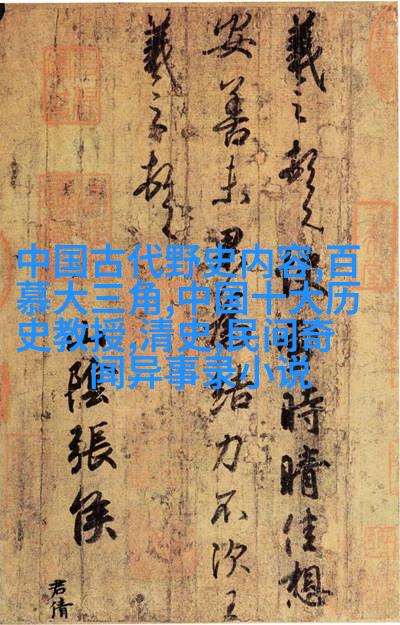 中国古代野史内容,百
慕大三角,中国十大历
史教授,清史,民间奇
闻异事录小说
羲之頓首快時晴佳想
安善未果結力不次王
羲之頓首
山陰張侯
君倩